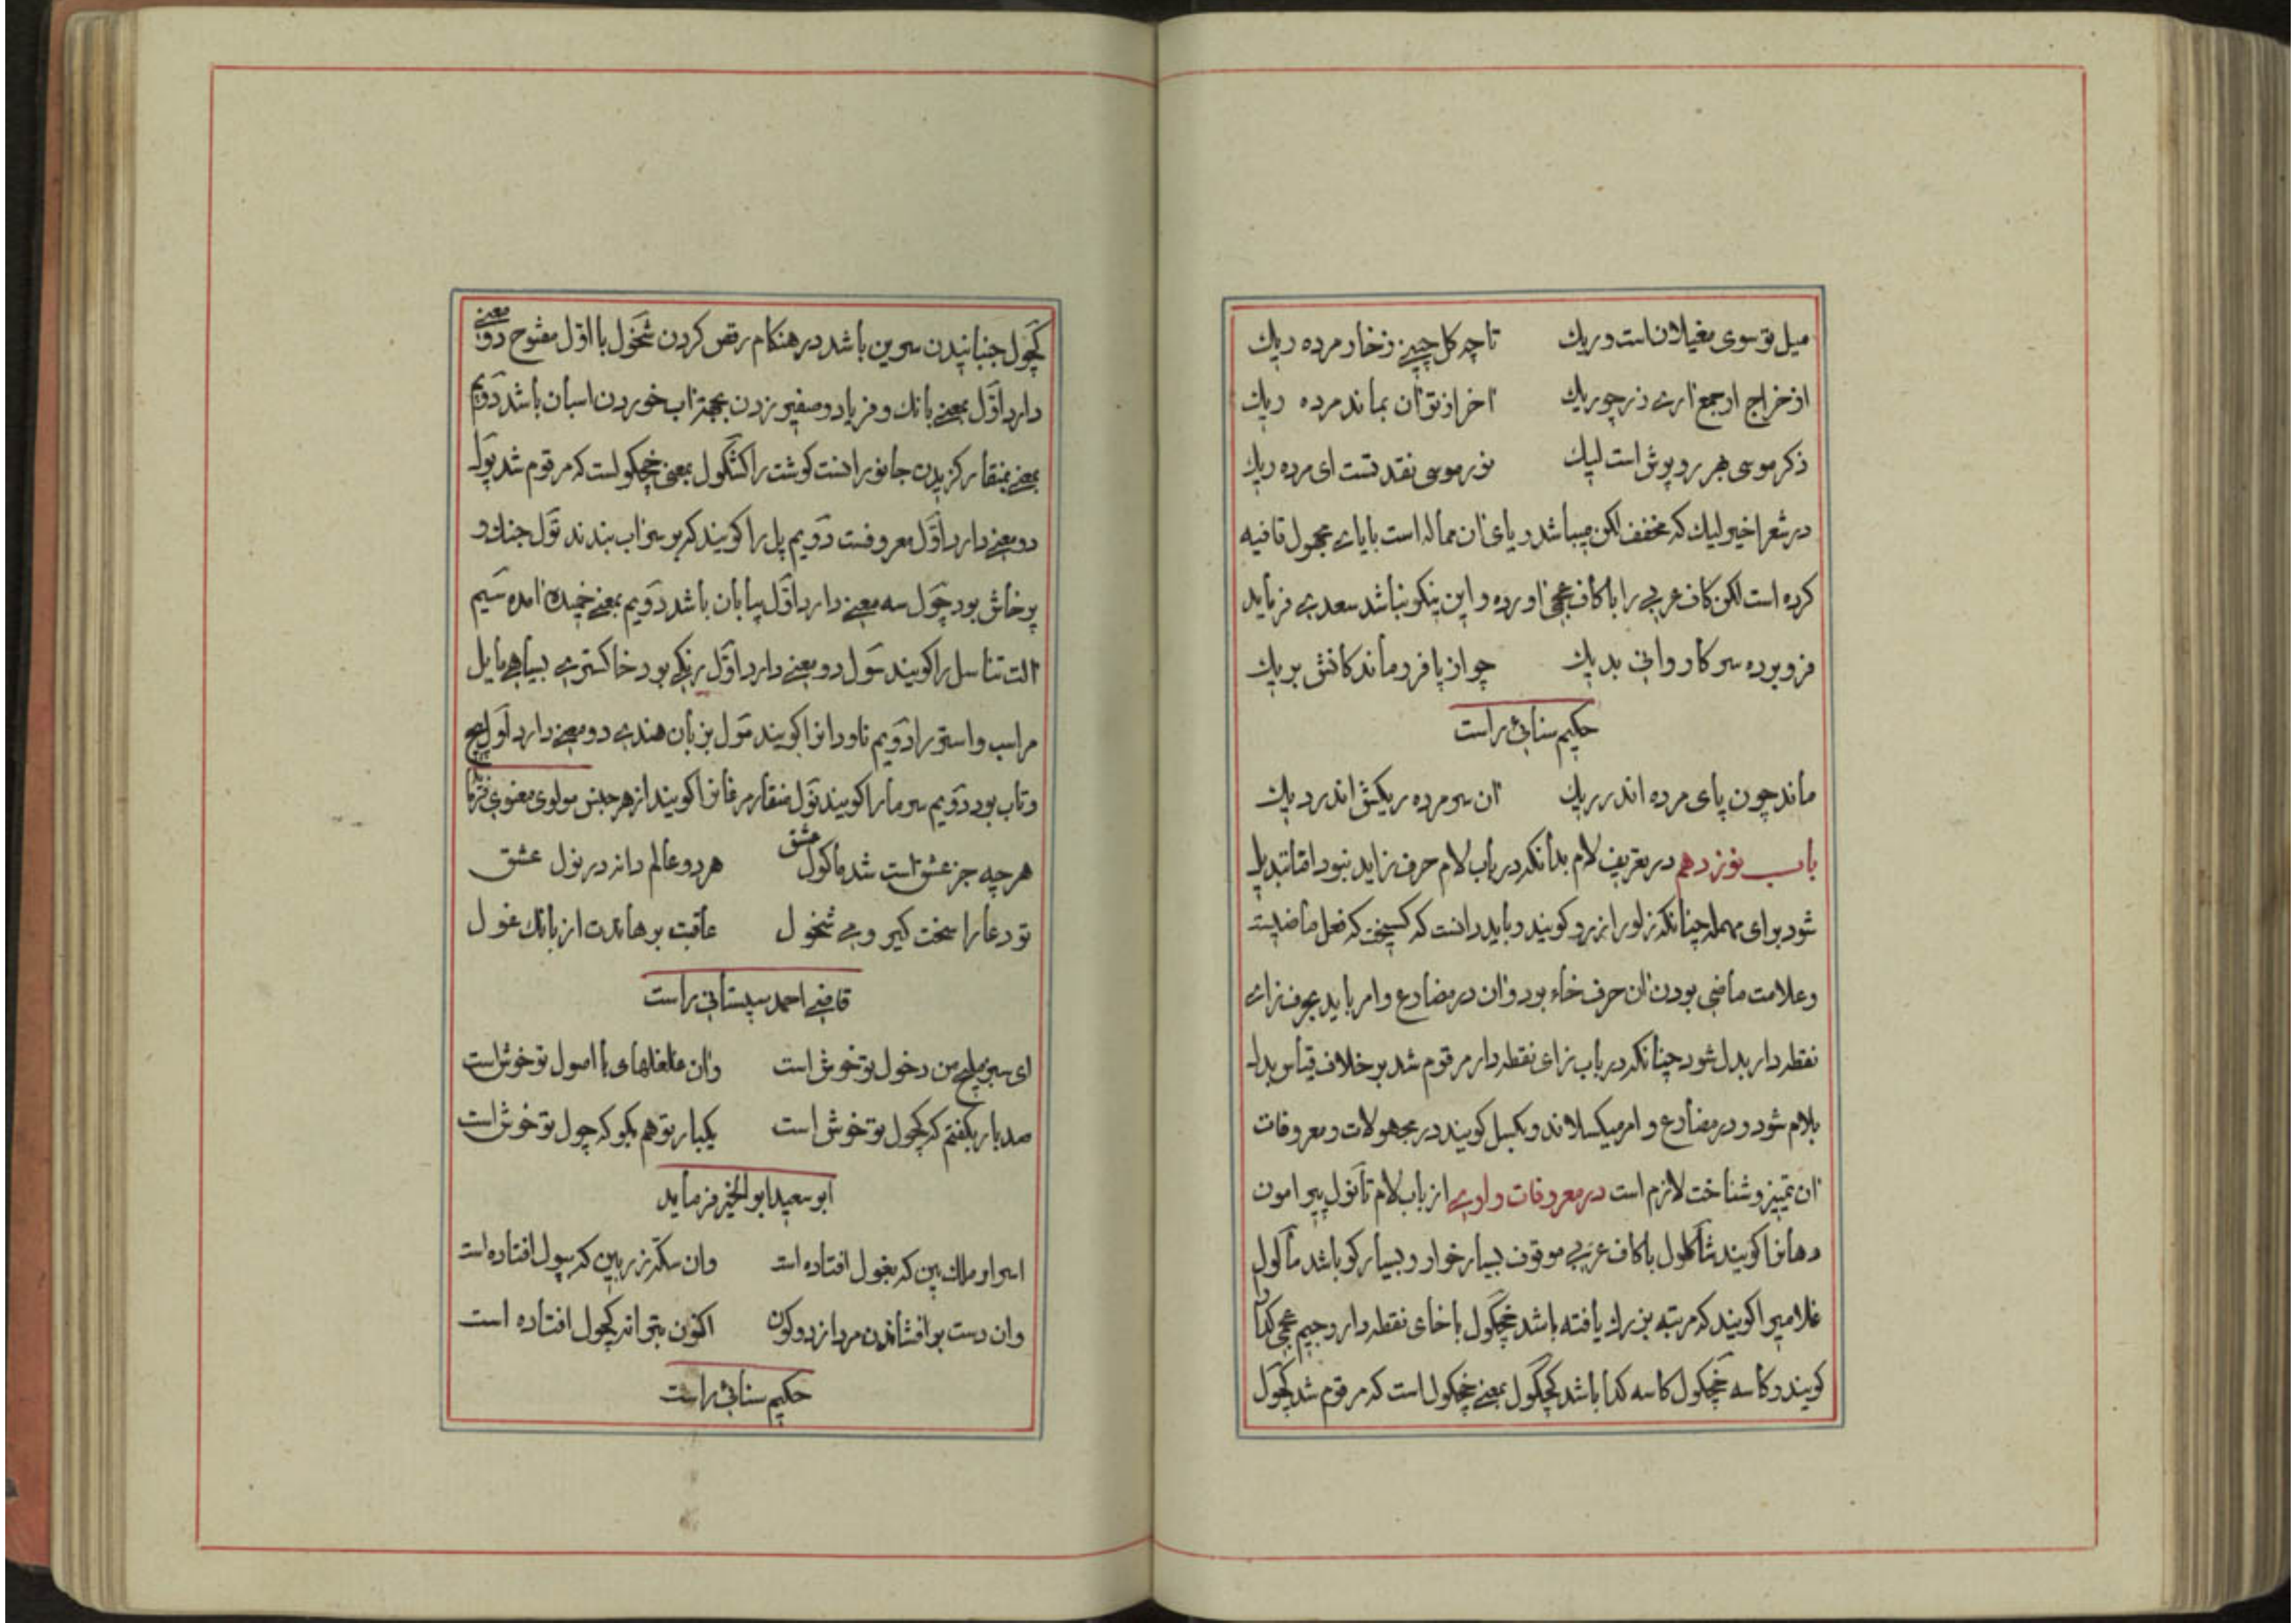 میل تو سوی مغیلانست و ریك تا چه کل چینے ز خار مرده ریك
از خراج ار جمع ارے زر چو ریك اخر از تو ان بماند مرده ریك
ذکر موسی بهر روپوش است لیك نور موسی نقد تست ای مرده ریك
در شعر اخیر لیك که مخفف لکن میباشد و یای ان مماله است با یاے مجهول قافیه
کرده است لکن کاف عربی را با کاف عجمی اورده و این نیکو نباشد سعدی فرماید
فرو برده سر کاروانی بدیك چو از پا فرو ماند کانش بریك
حکیم سنائی راست
ماند چون پای مرده اندر ریك ان سر مرده ریکش اندر دیك
باب نوزدهم در تعریف لام بدانکه در باب لام حرف زاید نبود اما تبدیل
شود برای مهمله چنانکه زلو را زرو کویند و باید دانست که کسیخت که فعل ماضیست
و علامت ماضی بودن ان حرف خاء بود و ان در مضارع و امر باید بحرف زاے
نقطه دار بدل شود چنانکه در باب زای نقطه دار مرقوم شد بر خلاف قیاس بدل
بلام شود و در مضارع و امر میکسلاند و بکسل کویند در مجهولات و معروفات
ان تمیز و شناخت لازم است در معروفات واوے از باب لام تانول پیرامون
دهانرا کویند شاکلول با کاف عربی موقوف بسیار خوار و بسیار کو باشد ماکول
غلامیرا کویند که مرتبه بزرك یافته باشد خچکول با خای نقطه دار و جیم عجمی کدا را
کویند و کاسه خچکول کاسه کدا باشد کچکول بمعنی خچکول است که مرقوم شد کچول
کچول جنبانیدن سرین باشد در هنکام رقص کردن شخول با اول مفتوح دو معنی
دارد اول بمعنے بانك و فریاد و صفیر زدن بجهة اب خوردن اسبان باشد دویم
بمعنے بمنقار کزیدن جانورانست کوشت را کشکول بمعنی خچکولست که مرقوم شد پول
دو معنے دارد اول معروفست دویم پل را کویند که بر سر اب بندند تول جنك و
پرخاش بود چول سه معنے دارد اول بیابان باشد دویم بمعنے خمیده امده سیم
الت تناسل را کویند سول دو معنے دارد اول رنکی بود خاکسترے بسیاهے مایل
مر اسب و استر را دویم ناودانرا کویند مول بزبان هندے دو معنے دارد اول پیچ
و تاب بود دویم سر مار را کویند نول منقار مرغانرا کویند از هر جنس مولوی معنوی فرماید
هر چه جز عشق است شد ماکول عشق هر دو عالم دانه در نول عشق
تو دعا را سخت کیر و مے شخول عاقبت برهاندت از بانك غول
قاضے احمد سیستانی راست
ای سبز ملیح من دخول تو خوش است وان غلغلهای با اصول تو خوش است
صد بار بکفتم که کچول تو خوش است یکبار تو هم بکو که چول تو خوش است
ابو سعید ابو الخیر فرماید
اسرار ملك بین که بغول افتاده است وان سکه زر بین که بپول افتاده است
وان دست برافشاندن مردان ز دو کون اکنون بترانه کچول افتاده است
حکیم سنائی راست